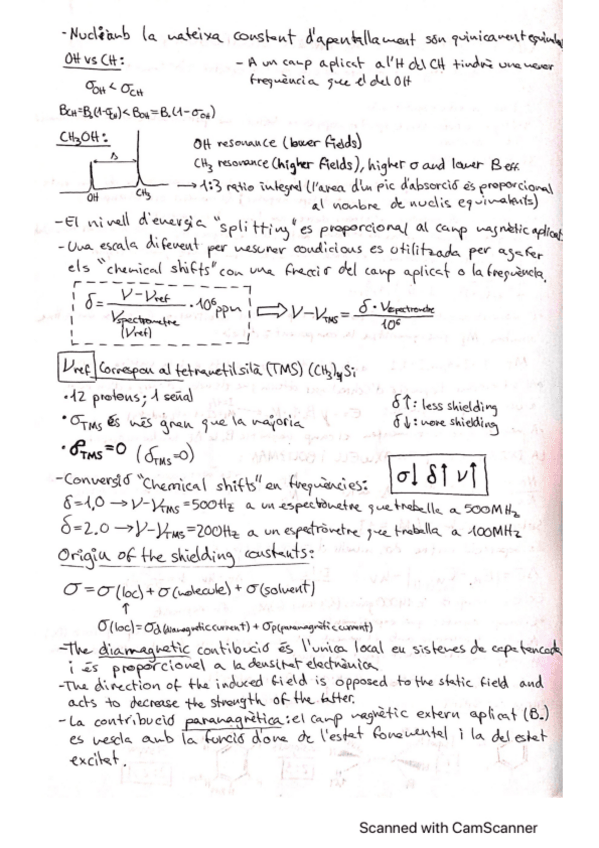 - Nuclis amb la mateixa constant d'apantallament són químicament equivalents
OH vs CH:
- A un camp aplicat al'H del CH tindrà una menor
freqüència que el del OH
σOH < σCH
BCH=B₀(1-σCH)<BOH=B₀(1-σOH)
CH₃OH:
Δ
OH
CH₃
OH resonance (lower fields)
CH₃ resonance (higher fields), higher σ and lower Beff.
→ 1:3 ratio integral (l'àrea d'un pic d'absorció és proporcional
al nombre de nuclis equivalents)
- El nivell d'energia "splitting" es proporcional al camp magnètic aplicat
- Una escala diferent per mesurar condicions es utilitzada per agafar
els "chemical shifts" con una fracció del camp aplicat o la freqüència.
δ = (ν-νref / νspectrometre (νref)) · 10⁶ ppm ⇒ ν-νTMS = δ·νspectrometre / 10⁶
νref Correspon al tetrametilsilà (TMS) (CH₃)₄Si
· 12 protons; 1 señal
· σTMS és més gran que la majoria
· δTMS=0 (δTMS=0)
δ↑: less shielding
δ↓: more shielding
σ↓ δ↑ ν↑
- Conversió "Chemical shifts" en freqüències:
δ=1,0 → ν-νTMS=500Hz a un espectròmetre que treballa a 500MHz
δ=2.0 → ν-νTMS=200Hz a un espectròmetre que treballa a 100MHz
Origin of the shielding constants:
σ=σ(loc)+σ(molecule)+σ(solvent)
↑
σ(loc)=σd(diamagnetic current)+σp(paramagnetic current)
- The diamagnetic contibució és l'unica local eu sistemes de capa tencada
i és proporcional a la densitat electrònica
- The direction of the induced field is opposed to the static field and
acts to decrease the strength of the latter.
- La contribució paramagnètica: el camp magnètic extern aplicat (B₀)
es mescla amb la funció d'ona de l'estat fonamental i la del estat
excitat.
Scanned with CamScanner